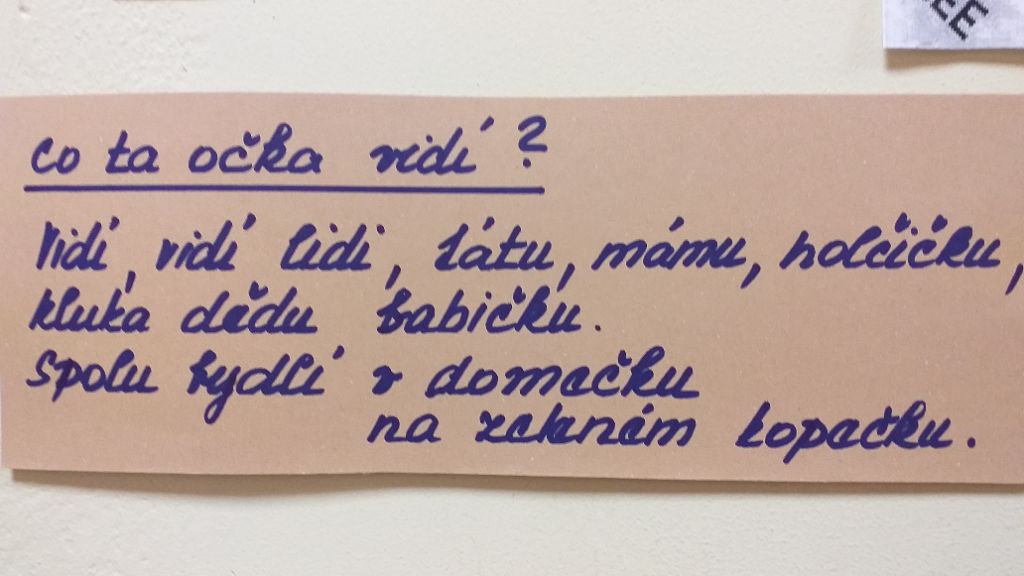 EE
co ta očka vidí?
Vidí, vidí lidi, tátu, mámu, holčičku,
kluka dědu babičku.
Spolu bydlí v domečku
na zeleném kopečku.